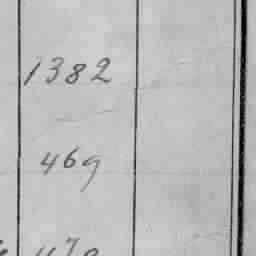 1382
469